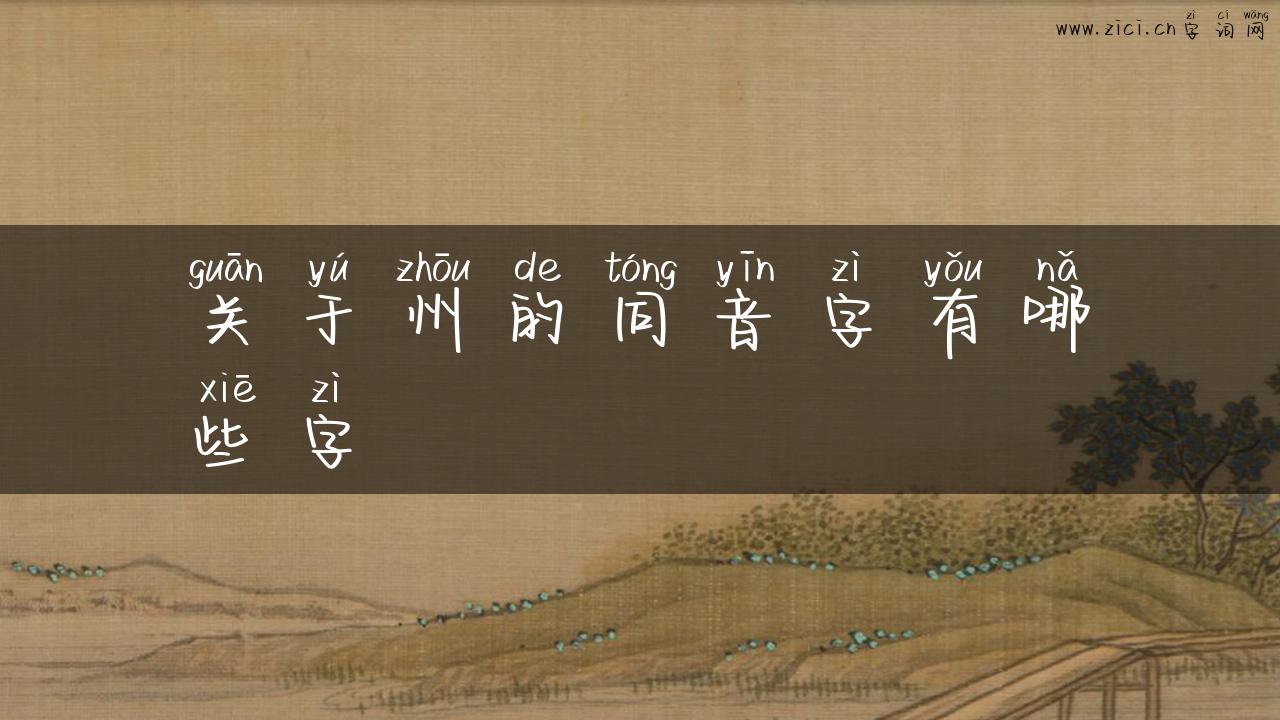 zì cí wǎng
www.zici.cn字词网
guān yú zhōu de tóng yīn zì yǒu nǎ
关于州的同音字有哪
xiē zì
些字